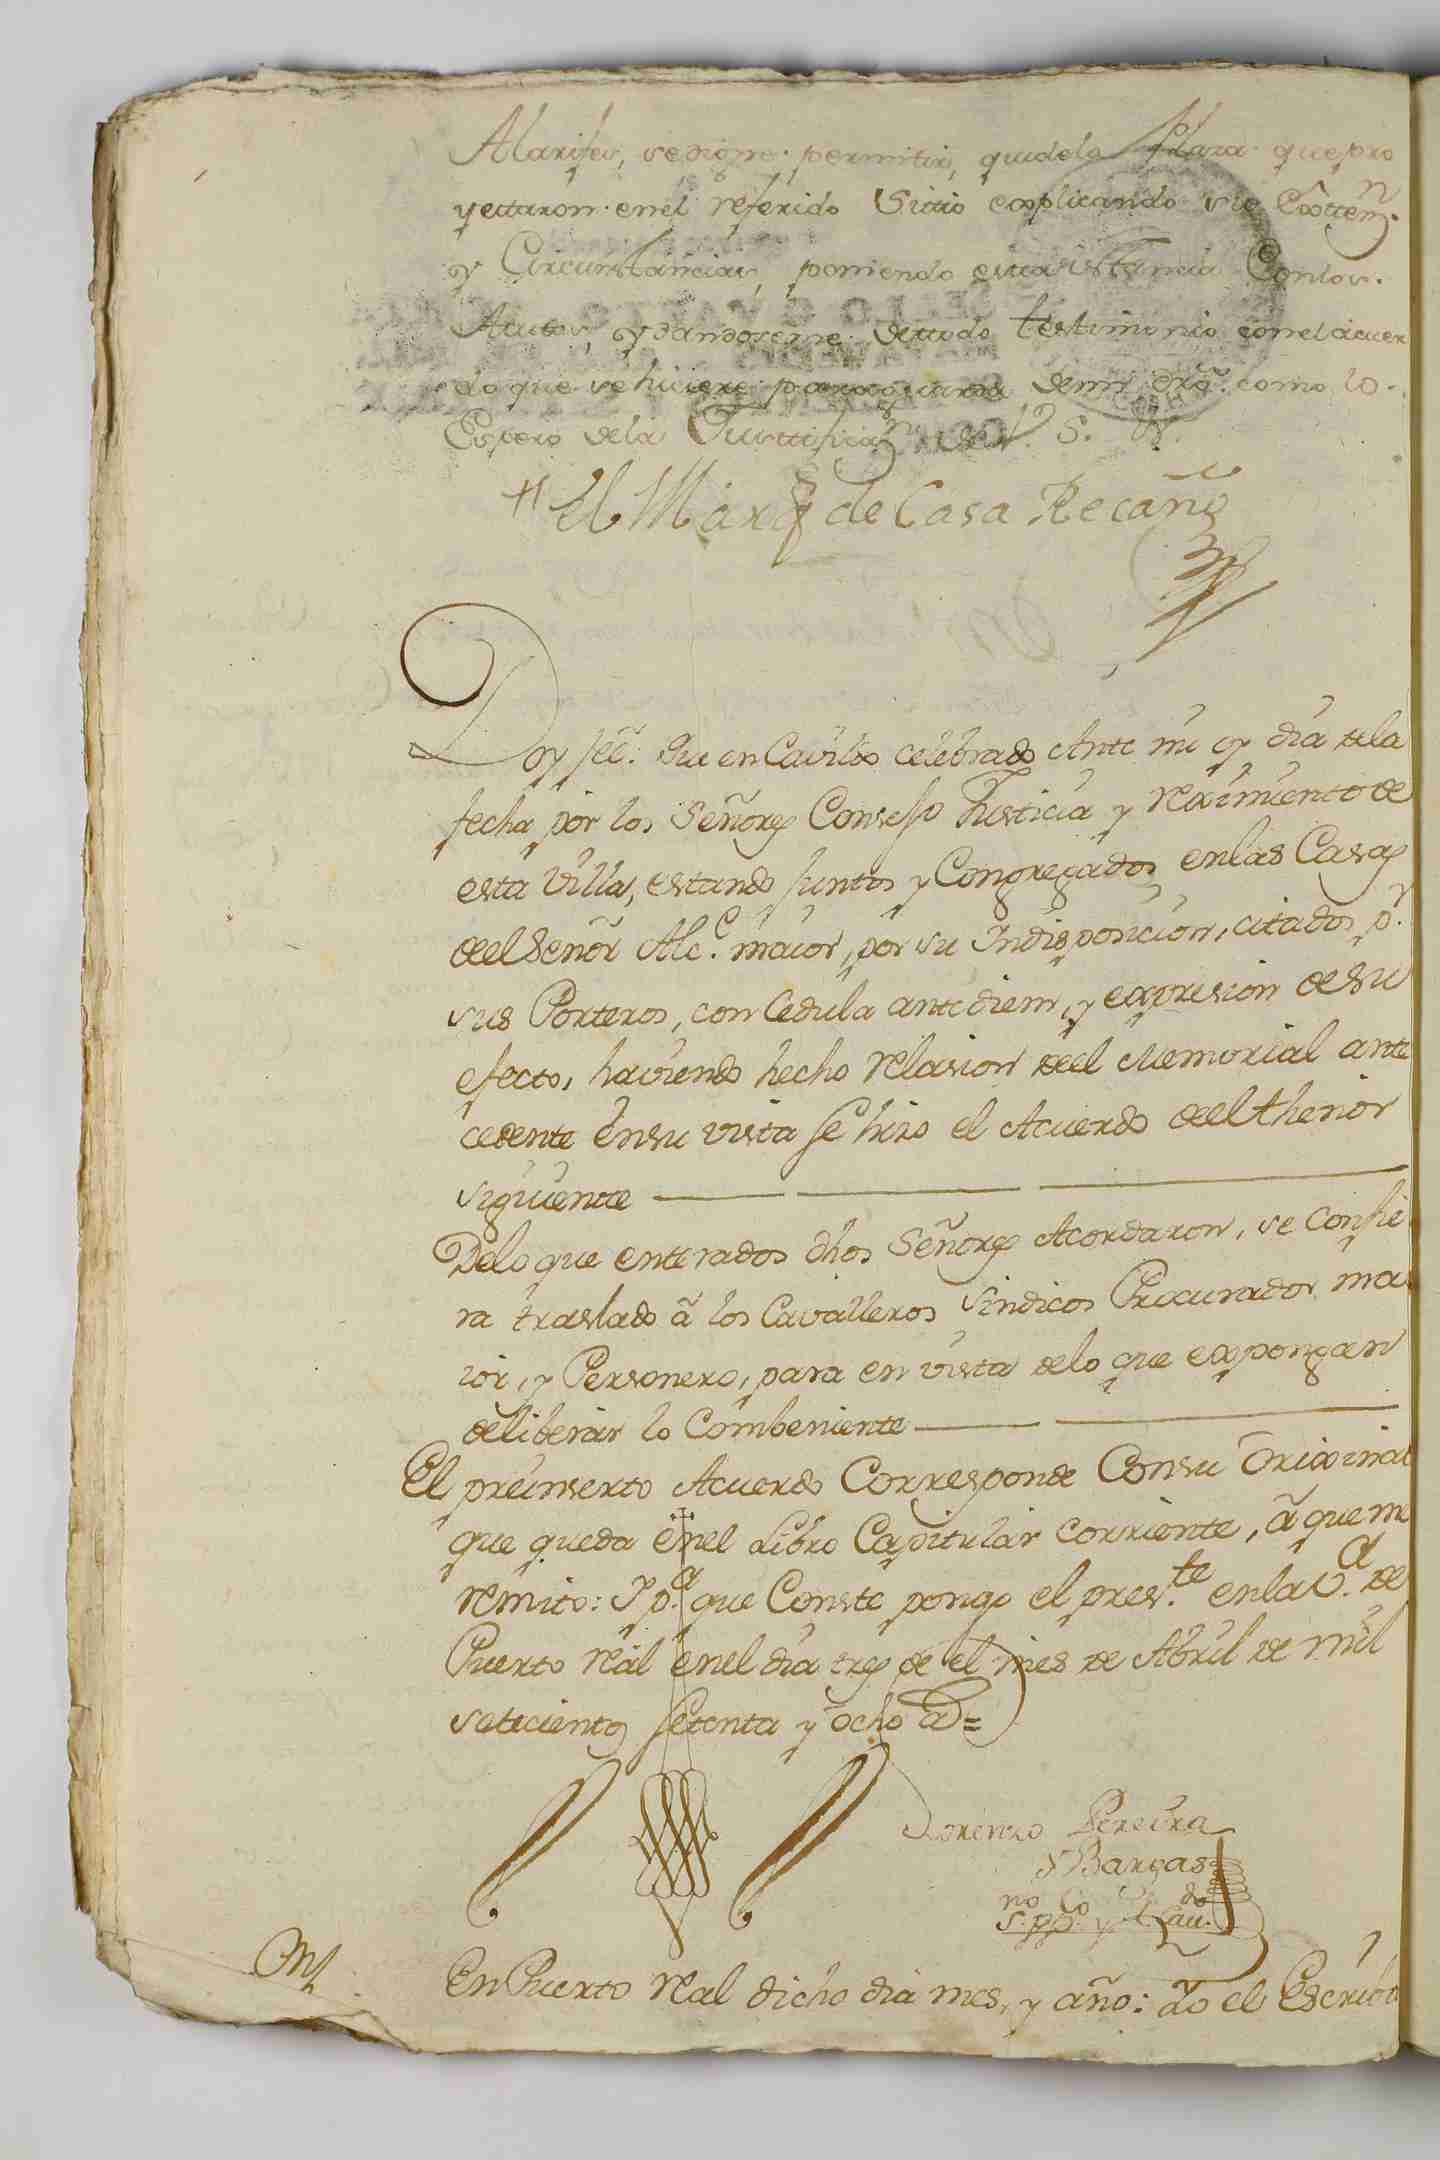 Alarifes, se digne permitir, quede la Plaza que pro
yectaron en el referido Sitio explicando su Exttenn.
y Circunstancias, poniendo esta istancia Con los
Autos, y dandoseme de ttodo testimonio con el acuer
do que se hiciere para guarda de mi dro. como lo
Espero de la Justtificazn. de V. S. &.
El Marqs de Casa Recaño
Doy feé: Que en Cavildo celebrado Ante mi oy dia de la
fecha por los Señores Consejo Justicia y reximiento de
esta Villa, estando juntos y Congregados en las Casas
de el Señor Alce. maior, por su Indisposicion, citados pr.
sus Porteros, con Cedula ante diem, y expresion de su
efecto, haviendo hecho relasion de el Memorial ante
cedente en su vista se hizo el Acuerdo de el thenor
siguiente
De lo que enterados dhos Señores Acordaron, se confie
ra traslado á los Cavalleros Sindicos Procurador ma
ior, y Personero, para en vista de lo que expongan
deliberar lo Combeniente
El preinserto Acuerdo Corresponde Con su Orixinal
que queda en el Libro Capitular corriente, á que me
remito: Y pa. que Conste pongo el preste. en la Va. de
Puerto real en el dia tres de el mes de Abril de mil
setecientos setenta y ocho as=
Lorenzo Pereira
y Bargas
no co do
S. pp. y Cav.
En Puerto real dicho dia mes, y año: Yo el Escriba